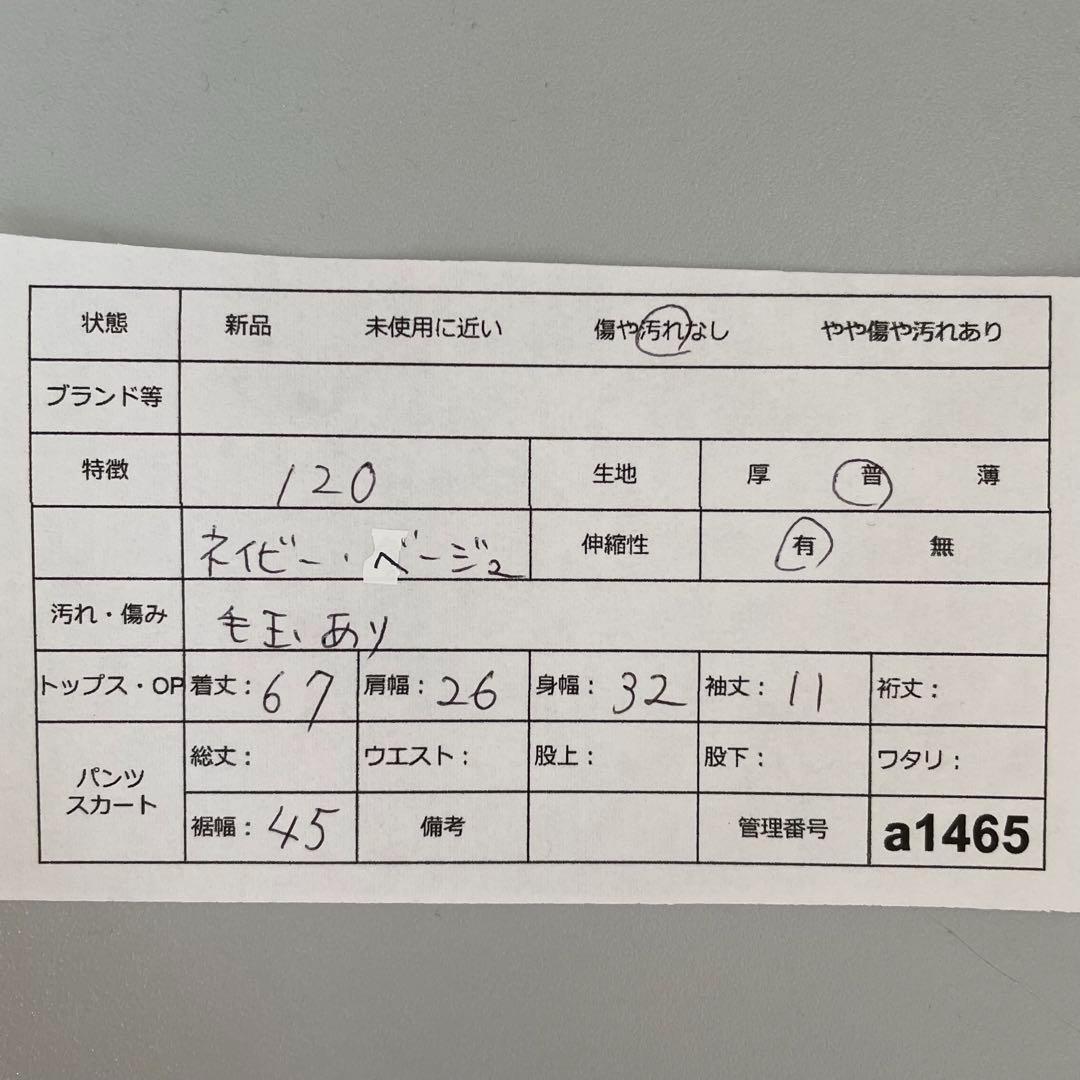 状態 新品 未使用に近い 傷や汚れなし やや傷や汚れあり
ブランド等
特徴 120 生地 厚 普 薄
ネイビー・ベージュ 伸縮性 有 無
汚れ・傷み 毛玉あり
トップス・OP 着丈: 67 肩幅: 26 身幅: 32 袖丈: 11 裄丈:
パンツ スカート 総丈: ウエスト: 股上: 股下: ワタリ:
裾幅: 45 備考 管理番号 a1465